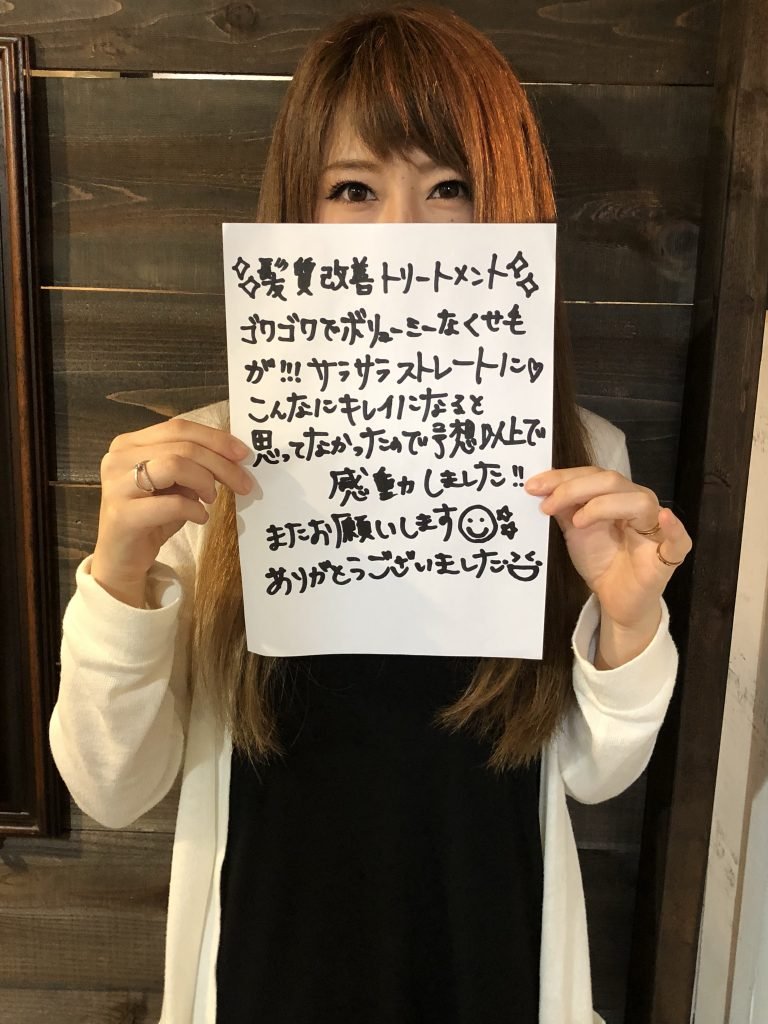 髪質改善トリートメント
ゴワゴワでボリューミーなくせも
が!!! サラサラストレートに♡
こんなにキレイになると
思ってなかったので予想以上で
感動しました!!
またお願いします
ありがとうございました